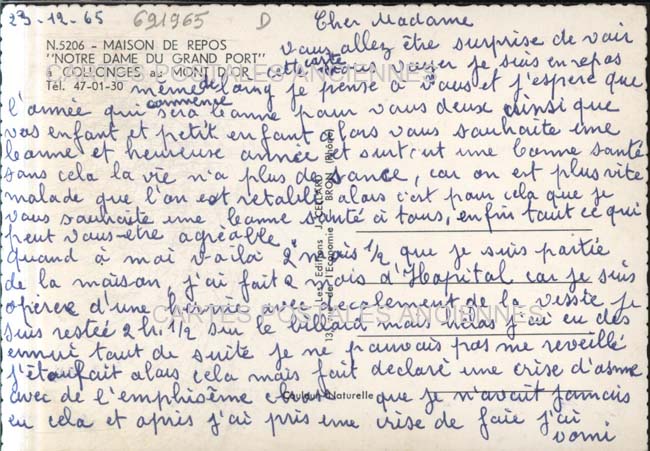 23-12-65
691965
D
Cher Madame
N.5206 - MAISON DE REPOS
"NOTRE DAME DU GRAND PORT"
à COLLONGES au MONT D'OR
Tél. 47-01-30
CARTES POSTALES ANCIENNES
vous allez être surprise de voir
cette carte vous voyer je suis en repos
même de loing je pense à vous et j'espere que
l'année qui commence sera bonne pour vous deux ainsi que
vos enfant et petit enfant alors vous souhaite une
bonne et heureuse année et surtout une bonne santé
sans cela la vie n'a plus de sance, car on est plus vite
malade que l'on est retabli alors c'est pour cela que je
vous souhaite une bonne santé à tous, enfin tout ce qui
peut vous-etre agréable.
Quand à moi voilà 2 mois 1/2 que je suis partie
de la maison, j'ai fait 2 mois d'Hopital car je suis
operee d'une hernie avec decolement de la vessie je
suis restée 2h. 1/2 sur le billard mais hélas j'ai eu des
ennui tout de suite je ne pouvais pas me reveillé
j'étoufait alors cela mais fait declaré une crise d'asme
avec de l'emphisème chose que je n'avait jamais
eu cela et après j'ai pris une crise de foie j'ai
vomi
Les Editions J. CELLARD
BRON (Rhône)
CARTES POSTALES ANCIENNES
Couleur Naturelle